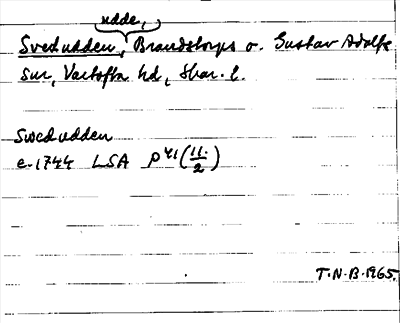 udde,
Svedudden, Brandstorps o. Gustav Adolfs
snr, Vartofta hd, Skar. l.
Svedudden
c. 1744 LSA P41 (11/2)
T.N.B. 1965.